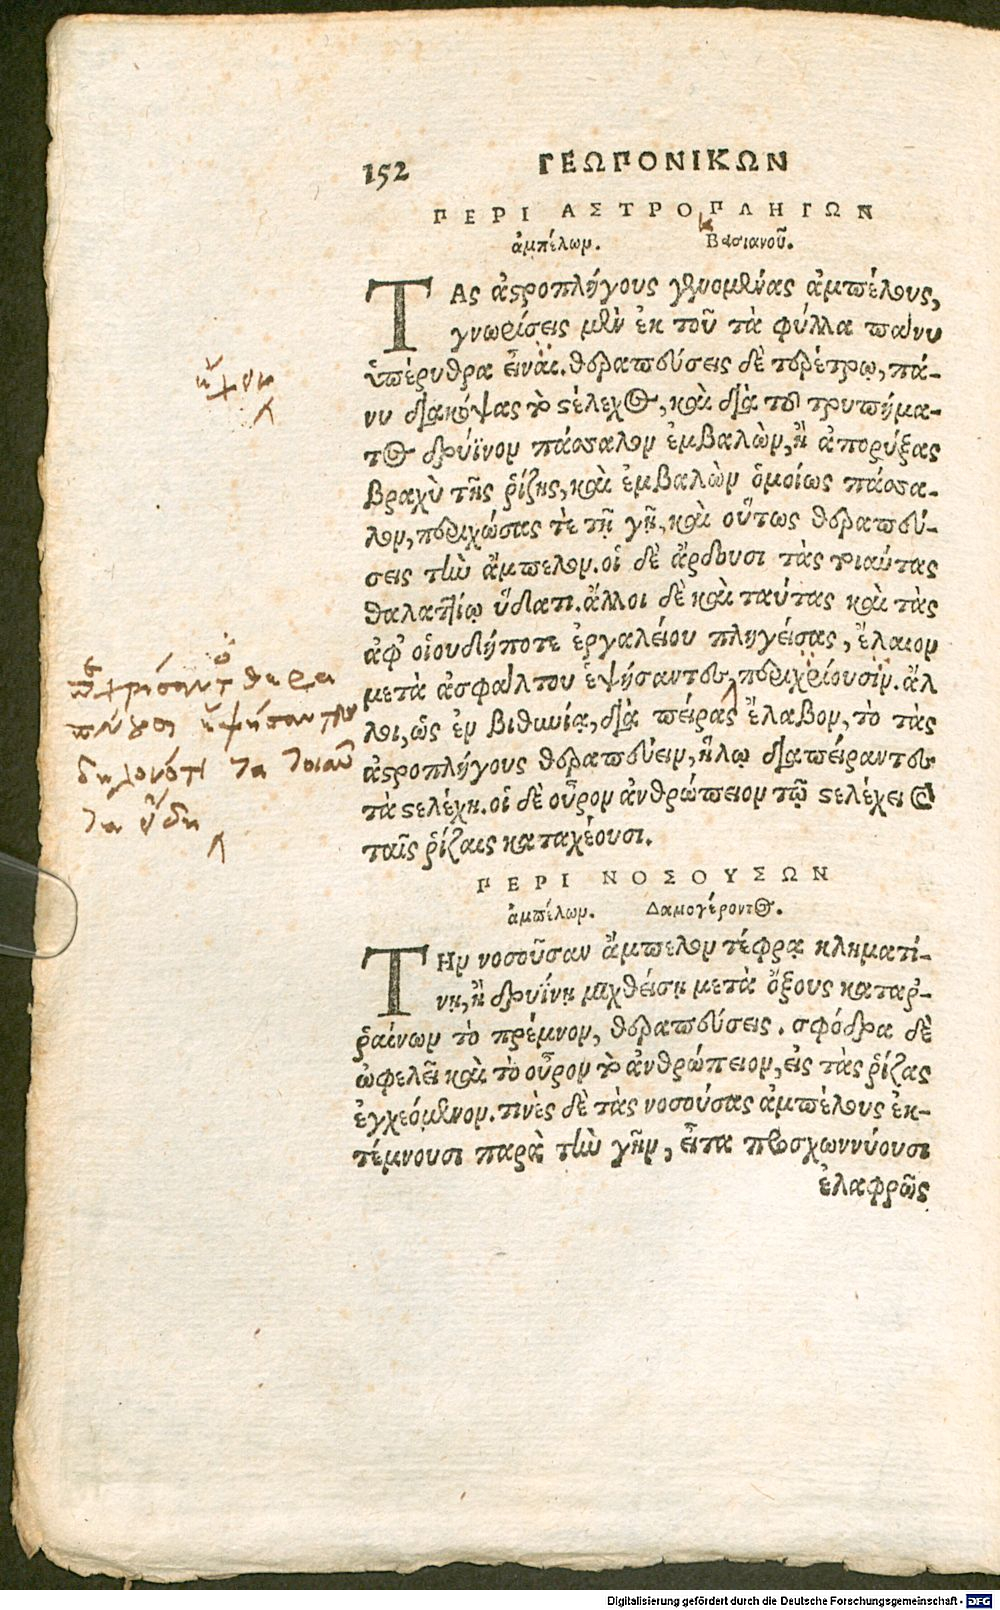 152 ΓΕΩΠΟΝΙΚΩΝ
ΠΕΡΙ ΑΣΤΡΟΠΛΗΓΩΝ
ἀμπέλων. Βασιανοῦ.
ΤΑς ἀστροπλήγους γενομένας ἀμπέλους,
γνωρίσεις μὲν ἐκ τοῦ τὰ φύλλα πάνυ
ὑπέρυθρα εἶναι. θεραπεύσεις δὲ τερέτρῳ, πά-
νυ διακόψας τὸ στέλεχος, καὶ διὰ τοῦ τρυπήμα-
τος δρύϊνον πάσσαλον ἐμβαλὼν, ἢ ἀπορύξας
βραχὺ τῆς ῥίζης, καὶ ἐμβαλὼν ὁμοίως πάσσα-
λον, περιχώσας τὲ τῇ γῇ, καὶ οὕτως θεραπεύ-
σεις τὴν ἄμπελον. οἱ δὲ ἄρδουσι τὰς τοιαύτας
θαλαττίῳ ὕδατι. ἄλλοι δὲ καὶ ταύτας καὶ τὰς
ἀφ' οἱουδήποτε ἐργαλείου πληγείσας, ἔλαιον
μετὰ ἀσφάλτου ἑψήσαντες, περιχρίουσιν. ἄλ
λοι, ὡς ἐν βιθυνίᾳ, διὰ πείρας ἔλαβον, τὸ τὰς
ἀστροπλήγους θεραπεύειν, ἥλῳ διαπείραντες
τὰ στελέχη. οἱ δὲ οὖρον ἀνθρώπειον τῷ στελέχει καὶ
ταῖς ῥίζαις καταχέουσι.
ΠΕΡΙ ΝΟΣΟΥΣΩΝ
ἀμπέλων. Δαμογέροντος.
ΤΗν νοσοῦσαν ἄμπελον τέφρᾳ κληματί-
νῃ, ἢ δρυΐνῃ μιχθείσῃ μετὰ ὄξους καταῤ-
ῥαίνων τὸ πρέμνον, θεραπεύσεις. σφόδρα δὲ
ὠφελεῖ καὶ τὸ οὖρον τὸ ἀνθρώπειον, εἰς τὰς ῥίζας
ἐγχεόμενον. τινὲς δὲ τὰς νοσούσας ἀμπέλους ἐκ-
τέμνουσι παρὰ τὴν γῆν, εἶτα προσχωννύουσι
ἐλαφρῶς
Digitalisierung gefördert durch die Deutsche Forschungsgemeinschaft - DFG